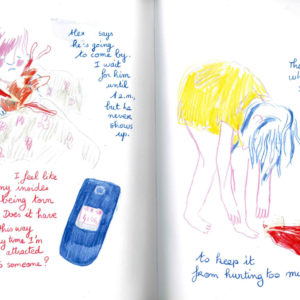 Alex says
he's going
to come by.
I wait
for him
until
1 a.m.
but he
never
shows
up.
I feel like
my insides
being torn
Does it have
this way
time I'm
attracted
to someone?
The
to keep it
from hurting too m